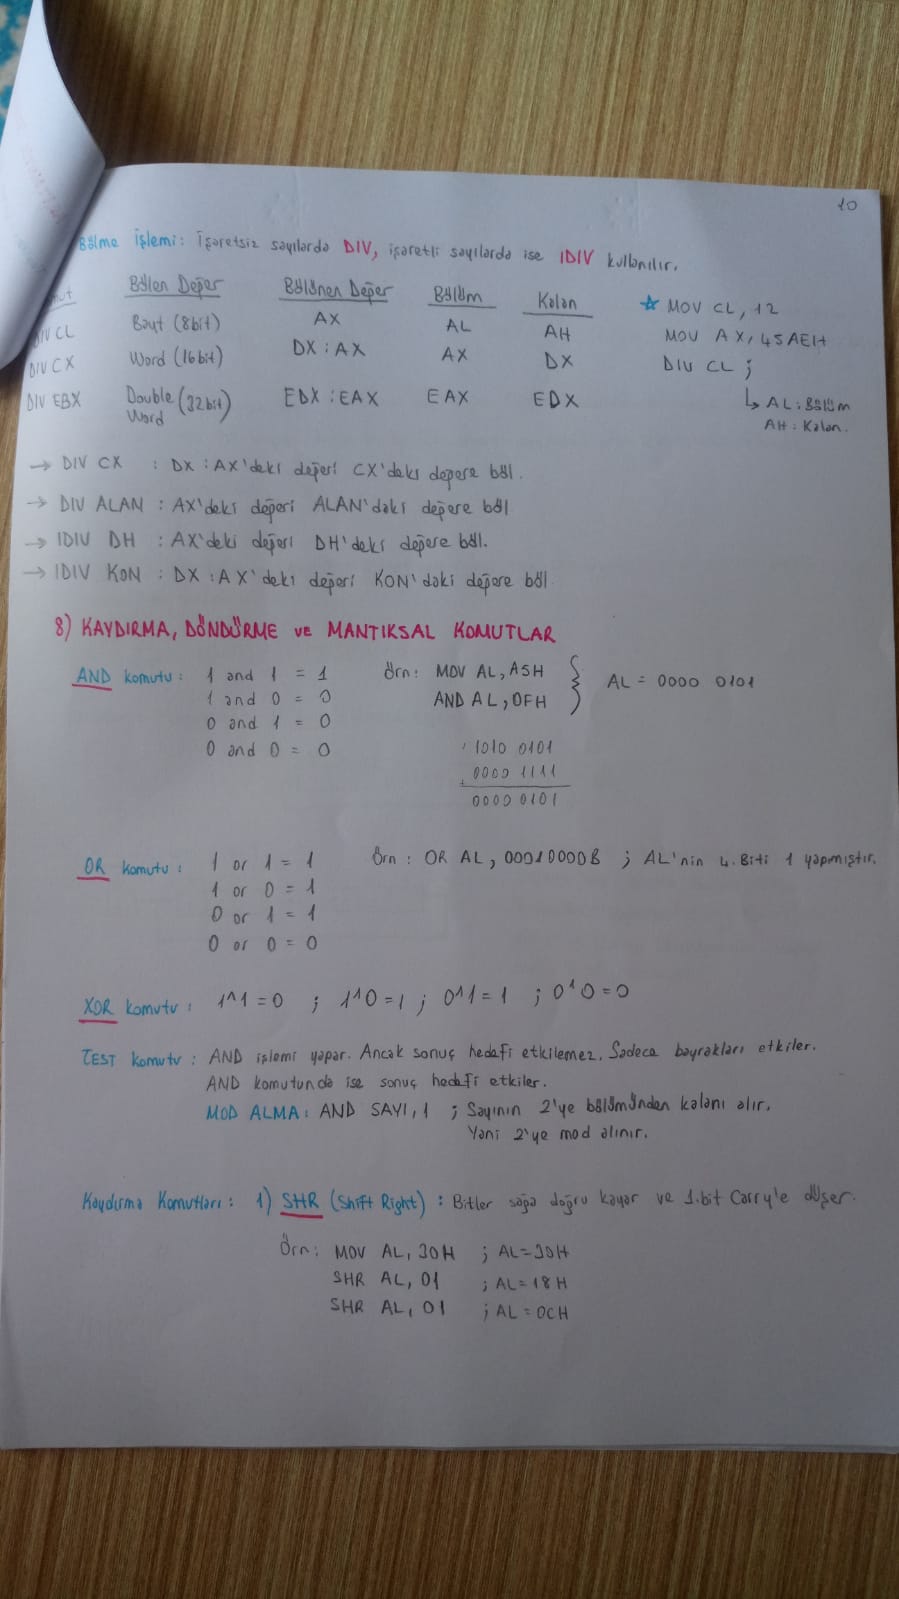 10
Bölme İşlemi: İşaretsiz sayılarda DIV, işaretli sayılarda ise IDIV kullanılır.
Bölen Değer Bölünen Değer Bölüm Kalan
DIV CL Bayt (8bit) AX AL AH
DIV CX Word (16bit) DX:AX AX DX
DIV EBX Double Word (32bit) EDX:EAX EAX EDX
☆ MOV CL, 12
MOV AX, 45AEH
DIV CL;
↳ AL: Bölüm
AH: Kalan.
→ DIV CX : DX:AX'deki değeri CX'deki değere böl.
→ DIV ALAN : AX'deki değeri ALAN'daki değere böl
→ IDIV DH : AX'deki değeri DH'deki değere böl.
→ IDIV KON : DX:AX'deki değeri KON'daki değere böl
8) KAYDIRMA, DÖNDÜRME ve MANTIKSAL KOMUTLAR
AND komutu : 1 and 1 = 1
1 and 0 = 0
0 and 1 = 0
0 and 0 = 0
Örn: MOV AL, A5H
AND AL, 0FH
} AL = 0000 0101
1010 0101
0000 1111
0000 0101
OR komutu : 1 or 1 = 1
1 or 0 = 1
0 or 1 = 1
0 or 0 = 0
Örn : OR AL, 00010000B ; AL'nin 4. Biti 1 yapmıştır.
XOR komutu : 1^1=0 ; 1^0=1 ; 0^1=1 ; 0^0=0
TEST komutu : AND işlemi yapar. Ancak sonuç hedefi etkilemez. Sadece bayrakları etkiler.
AND komutunda ise sonuç hedefi etkiler.
MOD ALMA: AND SAYI, 1 ; Sayının 2'ye bölümünden kalanı alır.
Yani 2'ye mod alınır.
Kaydırma Komutları: 1) SHR (Shift Right) : Bitler sağa doğru kayar ve 1.bit Carry'e düşer.
Örn: MOV AL, 30H ; AL=30H
SHR AL, 01 ; AL=18H
SHR AL, 01 ; AL=0CH